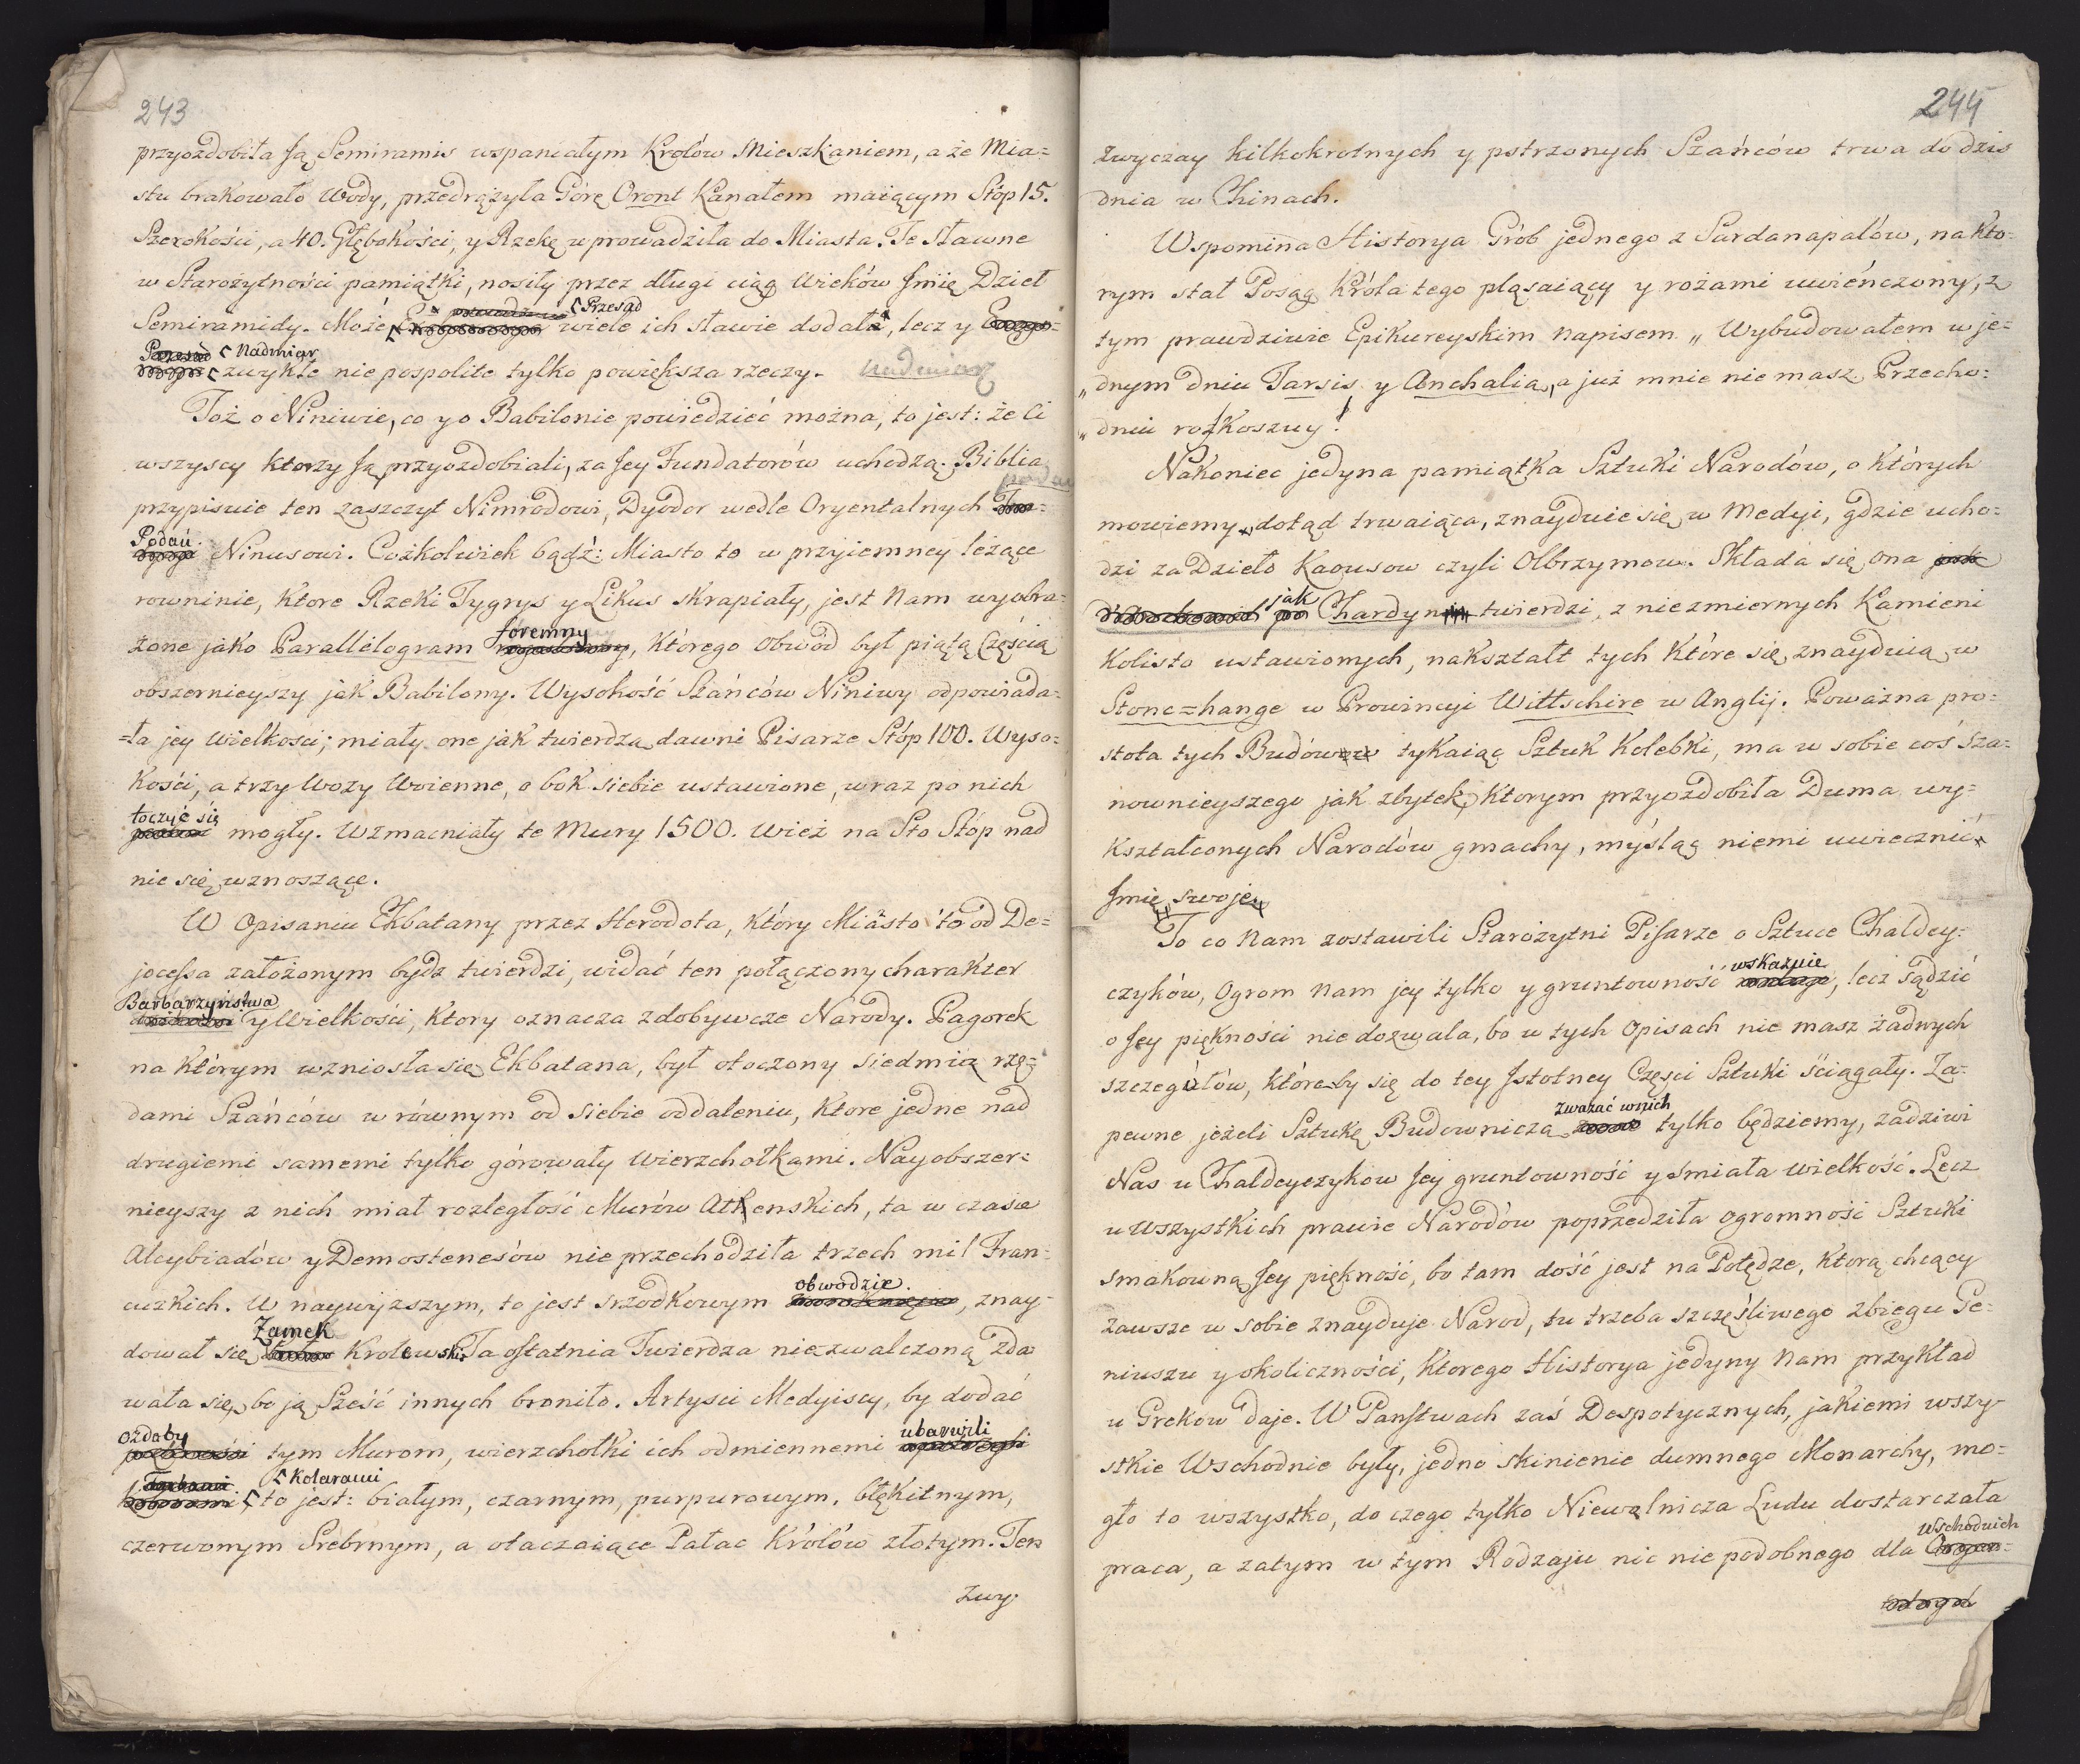 243
przyozdobiła Ją Semiramis wspaniałym Krolów Mieszkaniem, a że Mia=
stu brakowało Wody, przedrążyła Górę Oront Kanałem maiącym Stóp 15.
Szerokości, a 40. Głębokości, y Rzekę wprowadziła do Miasta. Te Sławne
w Starożytności pamiątki, nosiły przez długi ciąg Wieków Jmię Dzieł
Przesąd
Semiramidy. Może wiele ich sławie dodała, lecz y
Przesąd Nadmiar
zwykłe nie pospolite tylko powiększa rzeczy. nadmiar
Toż o Niniwie, co y o Babilonie powiedzieć można, to jest: że Ci
wszyscy ktorzy Ją przyozdobiali, za Jey Fundatorów uchodzą. Biblia
przypisuie ten zaszczyt Nimrodowi, Dyodor wedle Oryentalnych
Podań
Ninusowi. Cożkolwiek bądź: Miasto to w przyiemney leżące
rowninie, ktore Rzeki Tygrys y Likus skrapiały, jest Nam wyobra=
foremny
żone jako Parallelogram , którego Obwód był piątą Częścią
obszernieyszy jak Babilony. Wysokość Szańców Niniwy odpowiada=
=ła jey Wielkosci; miały one jak twierdzą dawni Pisarze Stóp 100. Wyso=
kości, a trzy Wozy Woienne, o bok siebie ustawione, wraz po nich
toczyć się
mogły. Wzmacniały te Mury 1500. Wież na Sto Stóp nad
nie się wznoszące.
W Opisaniu Ekbatany przez Herodota, który Miasto to od De=
jocessa założonym bydz twierdzi, widać ten połączony charakter
Barbarzyństwa
y Wielkości, ktory oznacza zdobywcze Narody. Pagorek
na którym wzniosła się Ekbatana, był otoczony siedmią rzę=
dami Szańców w równym od siebie oddaleniu, ktore jedne nad
drugiemi samemi tylko górowały Wierzchołkami. Nayobszer=
nieyszy z nich miał rozległość Murów Athenskich, ta w czasie
Alcybiadów y Demostenesów nie przechodziła trzech mil Fran=
obwodzie.
cuzkich. W naywyższym, to jest srzodkowym , znay=
Zamek
dował się Krolewski. Ta ostatnia Twierdza niezwalczoną zda
wała się, bo ją Sześć innych broniło. Artysci Medyiscy, by dodać
ozdoby ubarwili
tym Murom, wierzchołki ich odmiennemi
Farbami Kolorami
to jest: białym, czarnym, purpurowym, błękitnym,
czerwonym Srebrnym, a otaczaiące Pałac Królów złotym. Ten
Zwy.
244
Zwyczay kilkokrotnych y pstrzonych Szańców trwa do dzis
dnia w Chinach.
Wspomina Historya Grób jednego z Sardanapalów, na kto=
rym stał Posąg Króla tego pląsaiący y rożami uwieńczony, z
tym prawdziwie Epikureyskim napisem „ Wybudowałem w je=
„ dnym dniu Tarsis y Anchalia, a już mnie nie masz Przecho=
„ dniu rozkoszuy!
Nakoniec jedyna pamiątka Sztuki Narodów, o których
mowiemy, dotąd trwaiąca, znayduie się w Medyi, gdzie ucho=
dzi za Dzieło Kaousow czyli Olbrzymow. Składa się ona jak
jak
Chardyn twierdzi, z niezmiernych Kamieni
Kolisto ustawionych, nakształt tych Które się znayduią w
Stone=hange w Prowincyi Wittschire w Anglij. Poważna pro=
stota tych Budów tykaiąc Sztuk Kolebki, ma w sobie coś Sza=
nownieyszego jak zbytek, ktorym przyozdobiła Duma wy=
kształconych Narodów gmachy, myśląc niemi uwiecznić
Jmię swoje
To co Nam zostawili Starożytni Pisarze o Sztuce Chaldey=
wskazuie
czyków, Ogrom nam jey tylko y gruntowność , lecz sądzić
o Jey piękności nie dozwala, bo w tych Opisach nie masz żadnych
szczegółów, któreby się do tey Jstotney Częsci Sztuki ściągały. Za=
zważać w nich
pewne jeżeli Sztukę Budowniczą tylko będziemy, zadziwi
Nas u Chaldeyczykow Jey gruntowność y śmiała wielkość. Lecz
u wszystkich prawie Narodów poprzedziła ogromność Sztuki
smakowną Jey piękność, bo tam dość jest na Potędze, ktorą chcący
zawsze w sobie znayduje Narod, tu trzeba szczęśliwego zbiegu Ge=
niuszu y okoliczności, ktorego Historya jedyny Nam przykład
u Grekow daje. W Panstwach zaś Despotycznych, jakiemi wszy=
stkie Wschodnie były, jedno skinienie dumnego Monarchy, mo=
gło to wszystko, do czego tylko Niewolnicza Ludu dostarczała
Wschodnich
praca, a zatym w tym Rodzaju nic nie podobnego dla